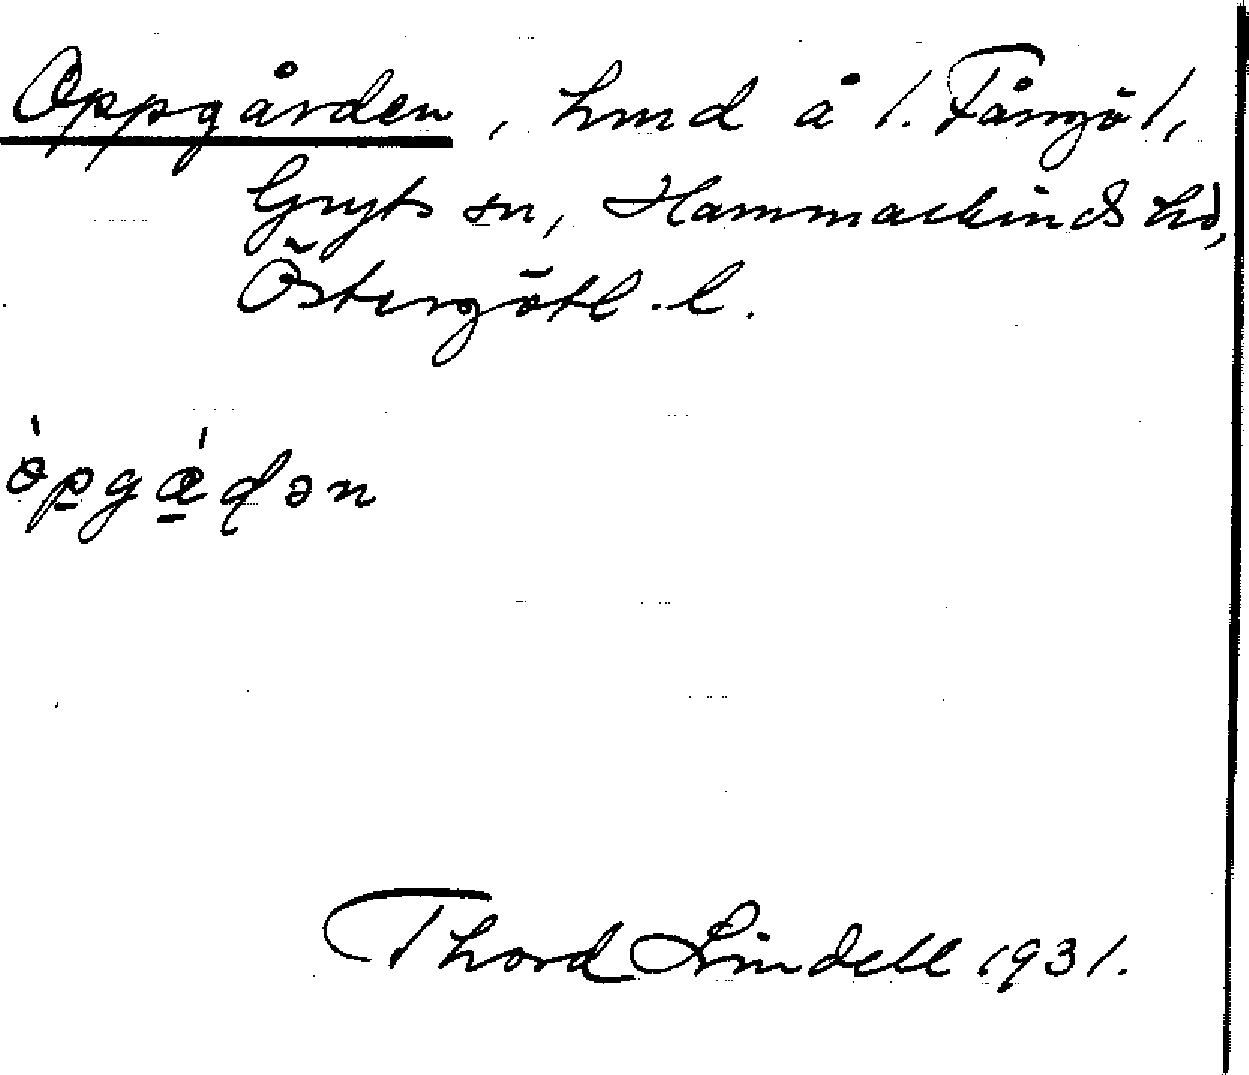 Oppgården, hmd å 1. Fångö 1,
Gryts sn, Hammarkinds hd,
Östergötl. l.
Thord Lindell 1931.